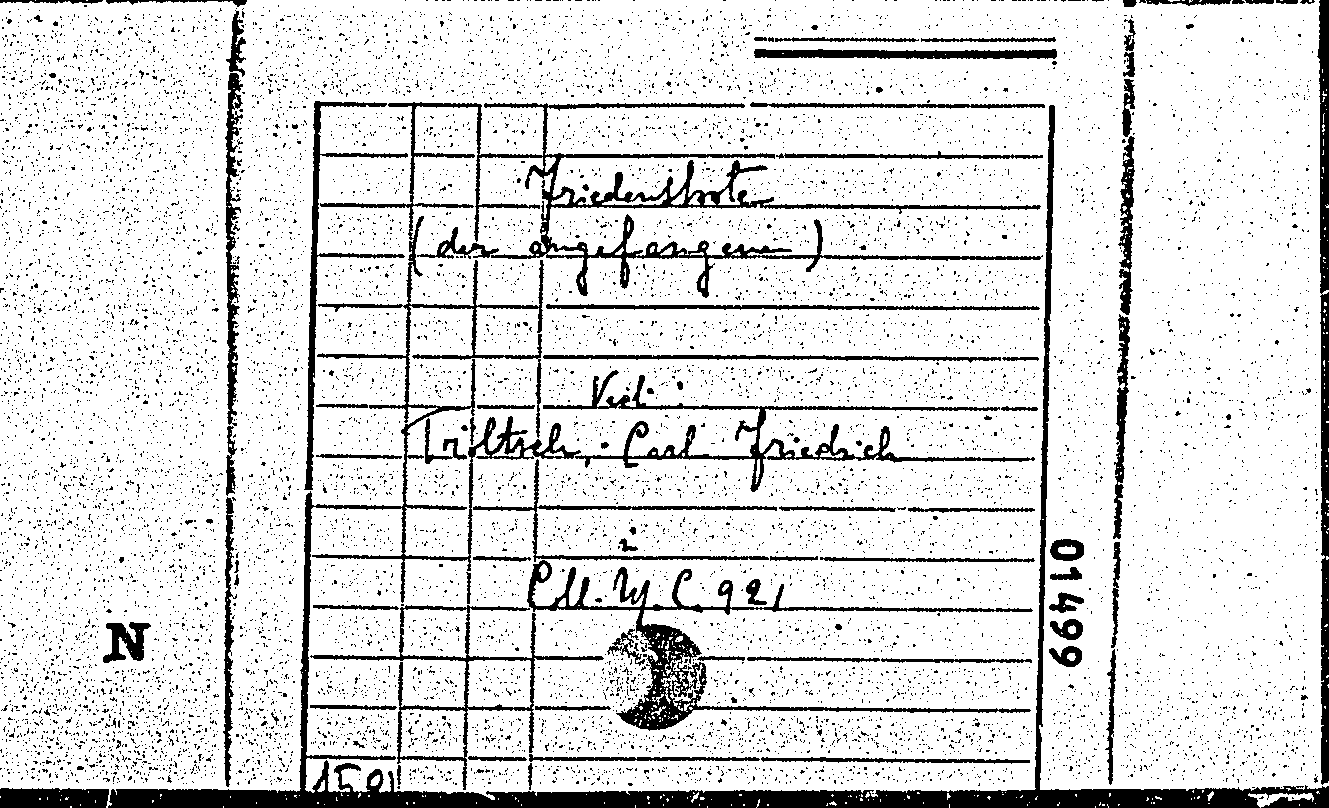 Friedensbote
(der angefangene)
Vedi:
Tröltsch, Carl Friedrich
in
Coll. Ny. C. 921
01499
N